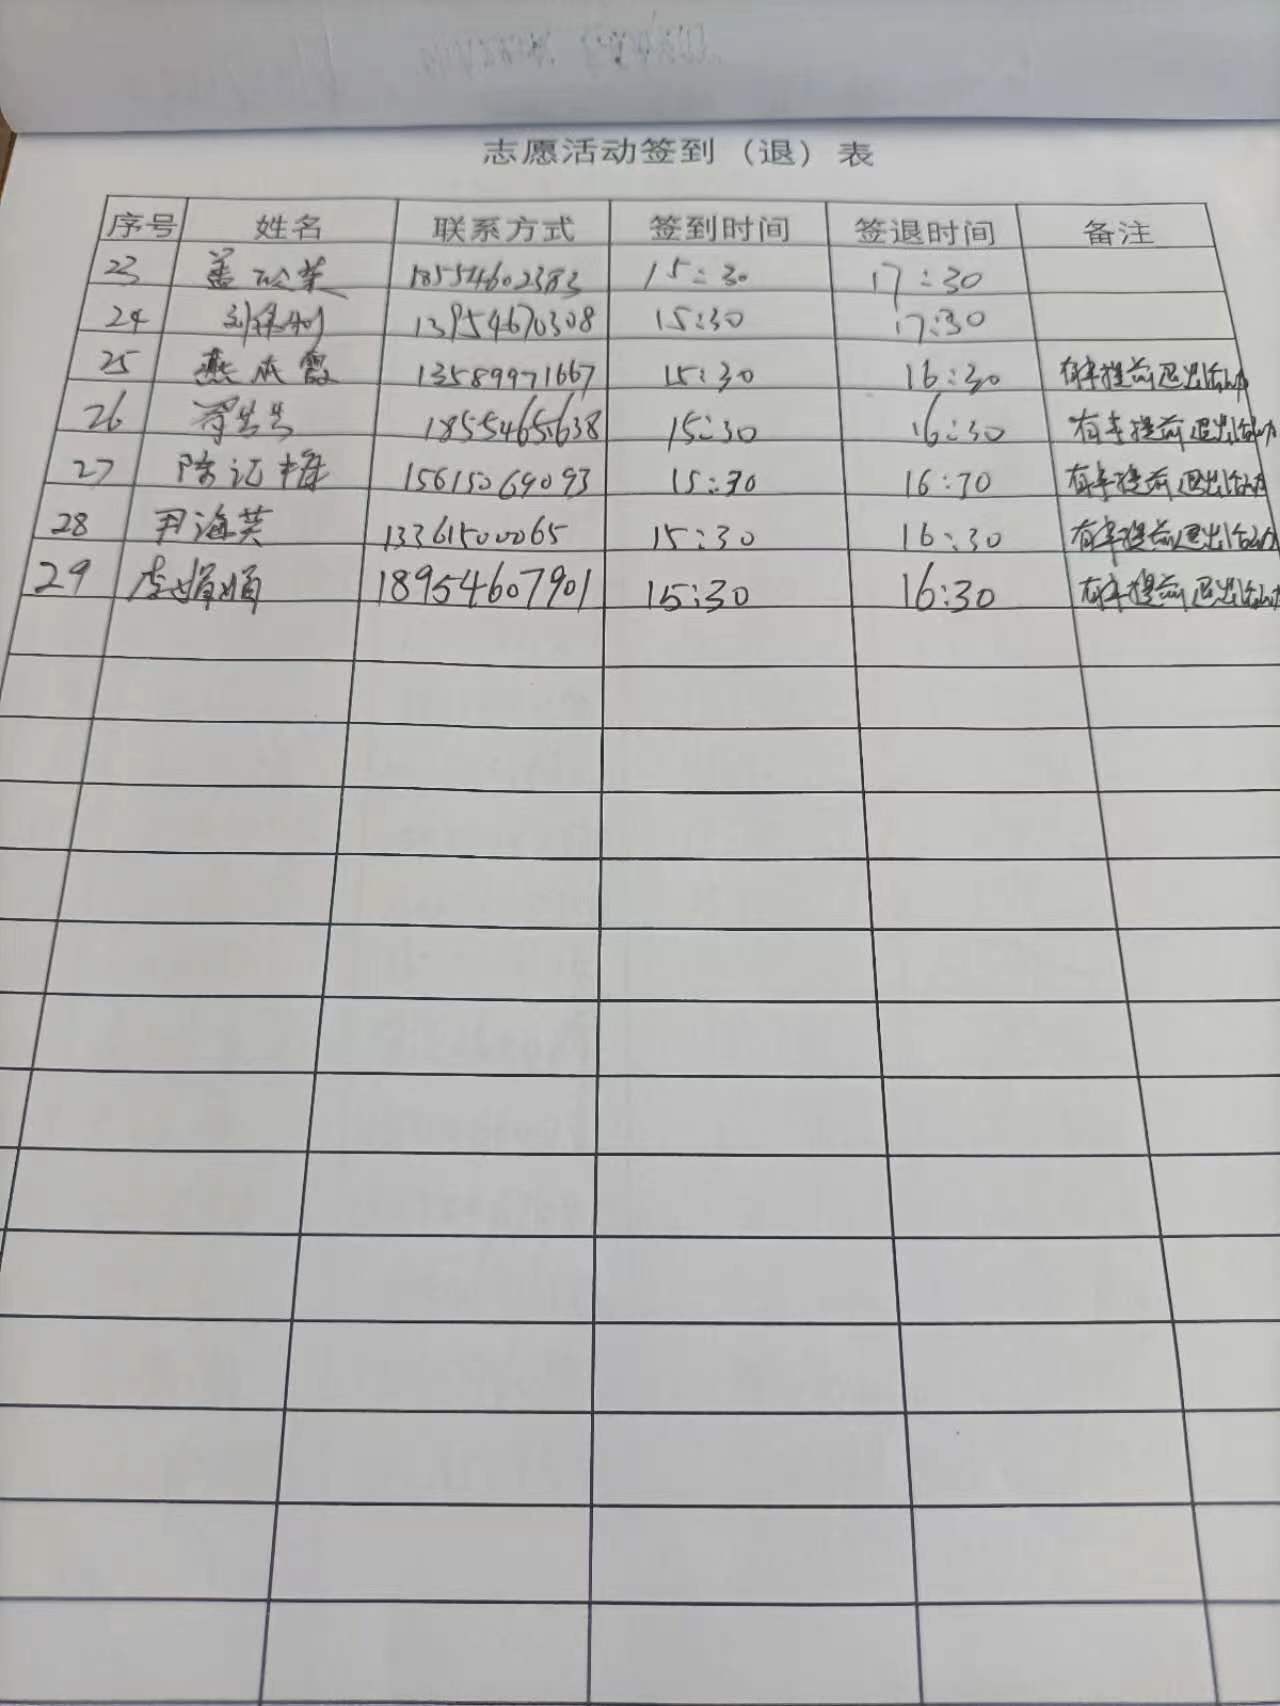 志愿活动签到（退）表
序号 姓名 联系方式 签到时间 签退时间 备注
23 盖 18554602383 15:30 17:30
24 刘 13954670308 15:30 17:30
25 燕 霞 13589971667 15:30 16:30 有事提前退出活动
26 185546 638 15:30 16:30 有事提前退出活动
27 陈记梅 15615069093 15:30 16:30 有事提前退出活动
28 尹海英 13361500065 15:30 16:30 有事提前退出活动
29 李娟娟 18954607901 15:30 16:30 有事提前退出活动